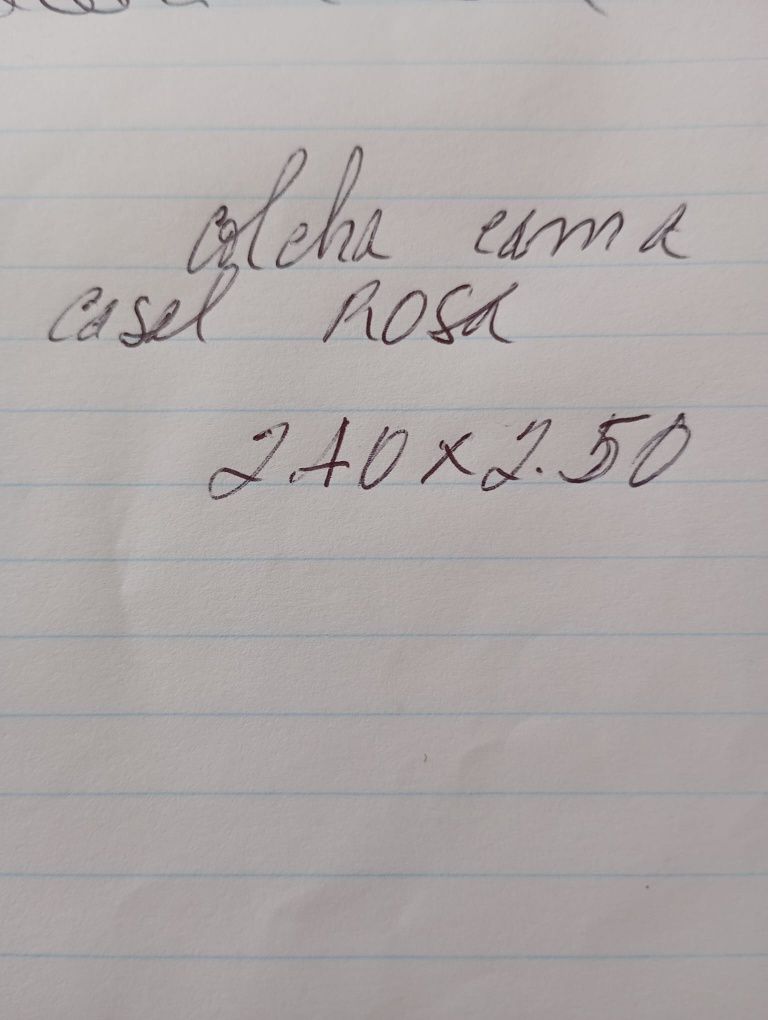 colcha cama
casal Rosa
2.40 x 2.50